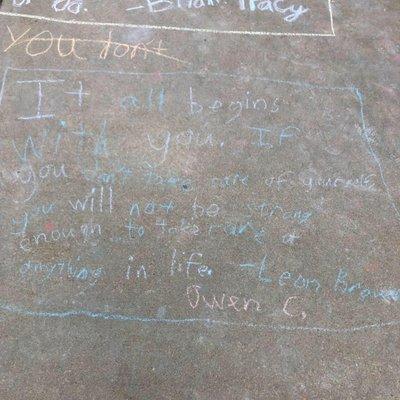 or do. -Brian Tracy
You don't
It all begins
with you. If
you don't take care of yourself,
you will not be strong
enough to take care of
anything in life. -Leon Brown
Owen C.